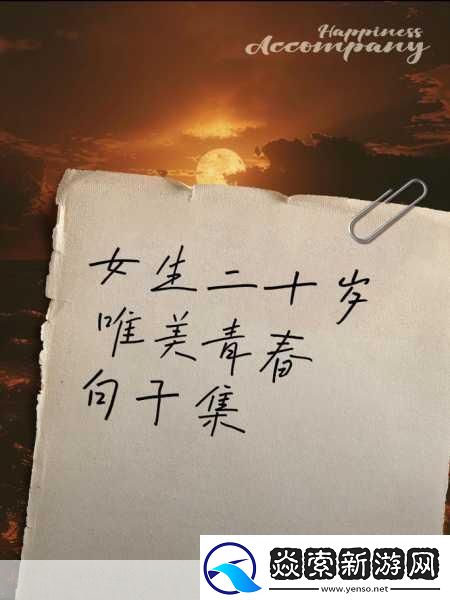 Happiness
Accompany
女生二十岁
唯美青春
句子集
焱索新游网
www.yenso.net